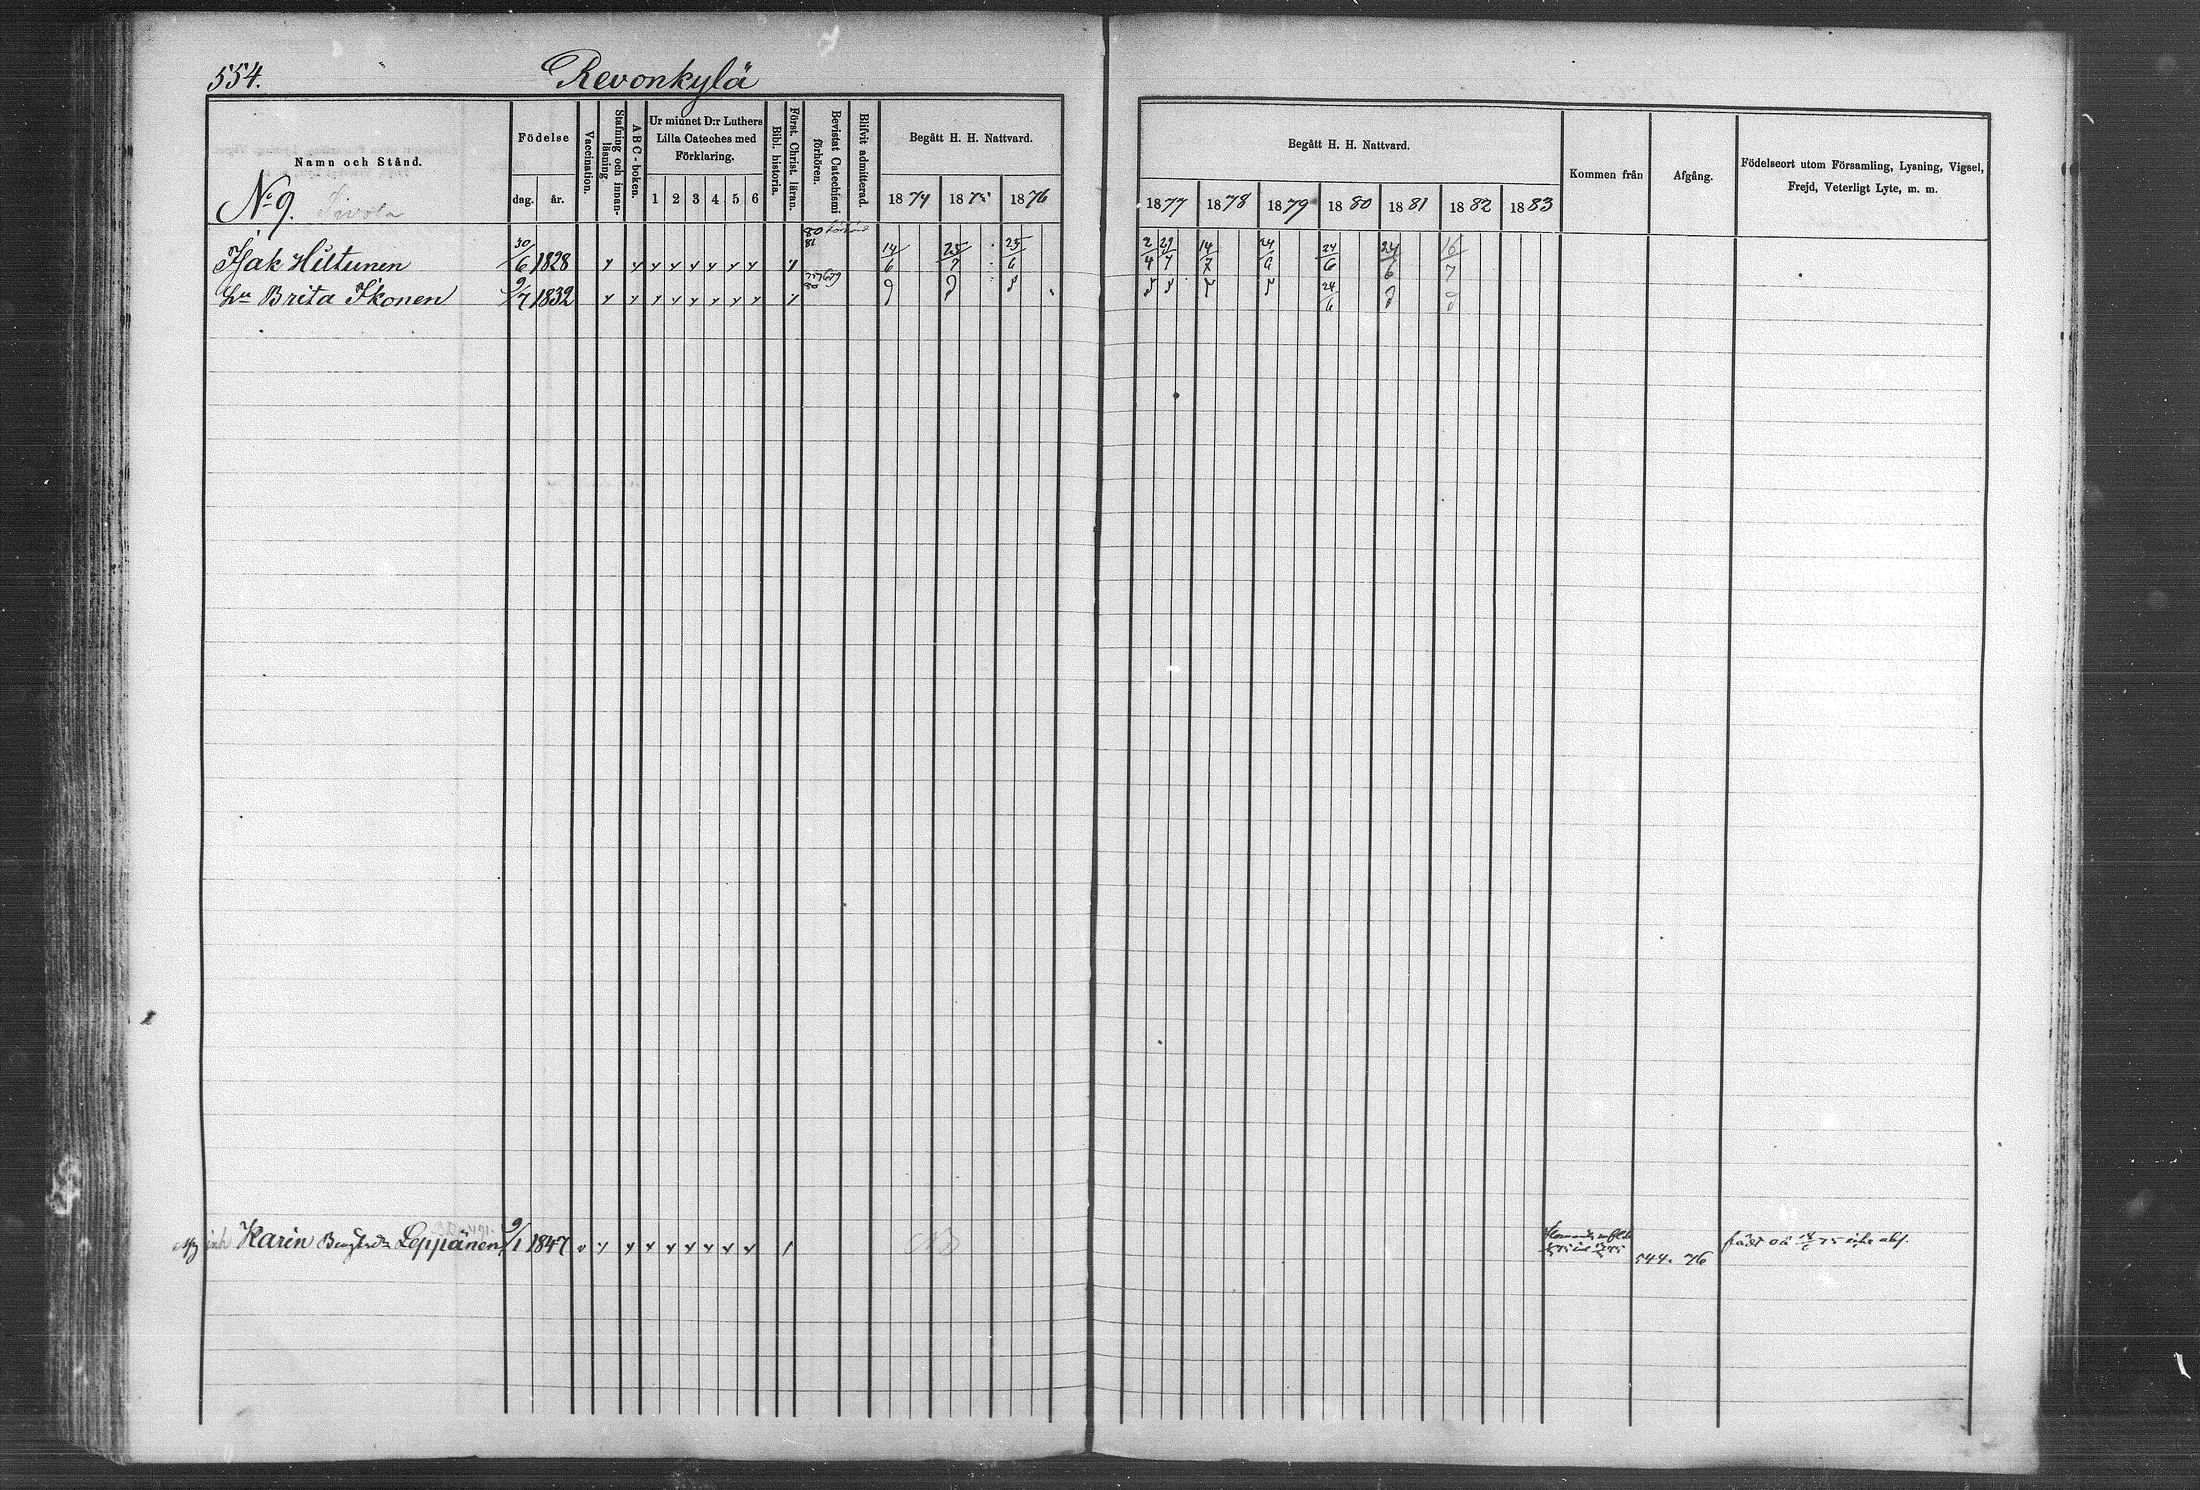 554.
Revonkylä
Namn och Stånd.
Födelse
dag.
år.
Vaccination.
Stafning och innan-
läsning
ABC-boken.
Ur minnet D:r Luthers
Lilla Cateches med
Förklaring.
1 2 3 4 5 6
Bibl. historia.
Först. Christ. läran.
Bevistat Catechismi
förhören.
Blifvit admitterad.
Begått H. H. Nattvard.
1874 1875 1876
Begått H. H. Nattvard.
1877 1878 1879 1880 1881 1882 1883
Kommen från
Afgång.
Födelseort utom Församling, Lysning, Vigsel,
Frejd, Veterligt Lyte, m. m.
No 9.
Isak Hiltunen 30/6 1828 14/6 25/7 25/6 2/4 29/7 14/7 24/6 24/6 24/6 16/7
hu Brita Ikonen 9/7 1832 24/6
Karin Leppänen 9/1 1847 544. 76